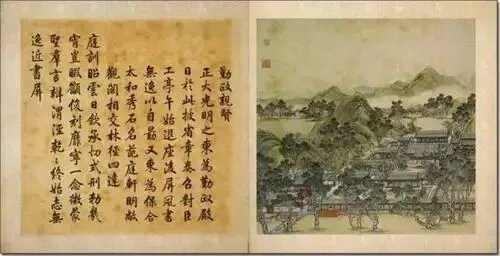 勤政親賢
正大光明之東為勤政殿
日於此披省章奏召對臣
工亭午始退座後屏風書
無逸以自勗又東為保合
太和秀石名葩庭軒明敞
觀閣相交林徑四達
庭訓昭雲日欽承切式刑勑幾
宵豈暇顧諟刻靡寧一念徵蒙
聖羣言辯渭涇乾〻終始志無
逸近書屏